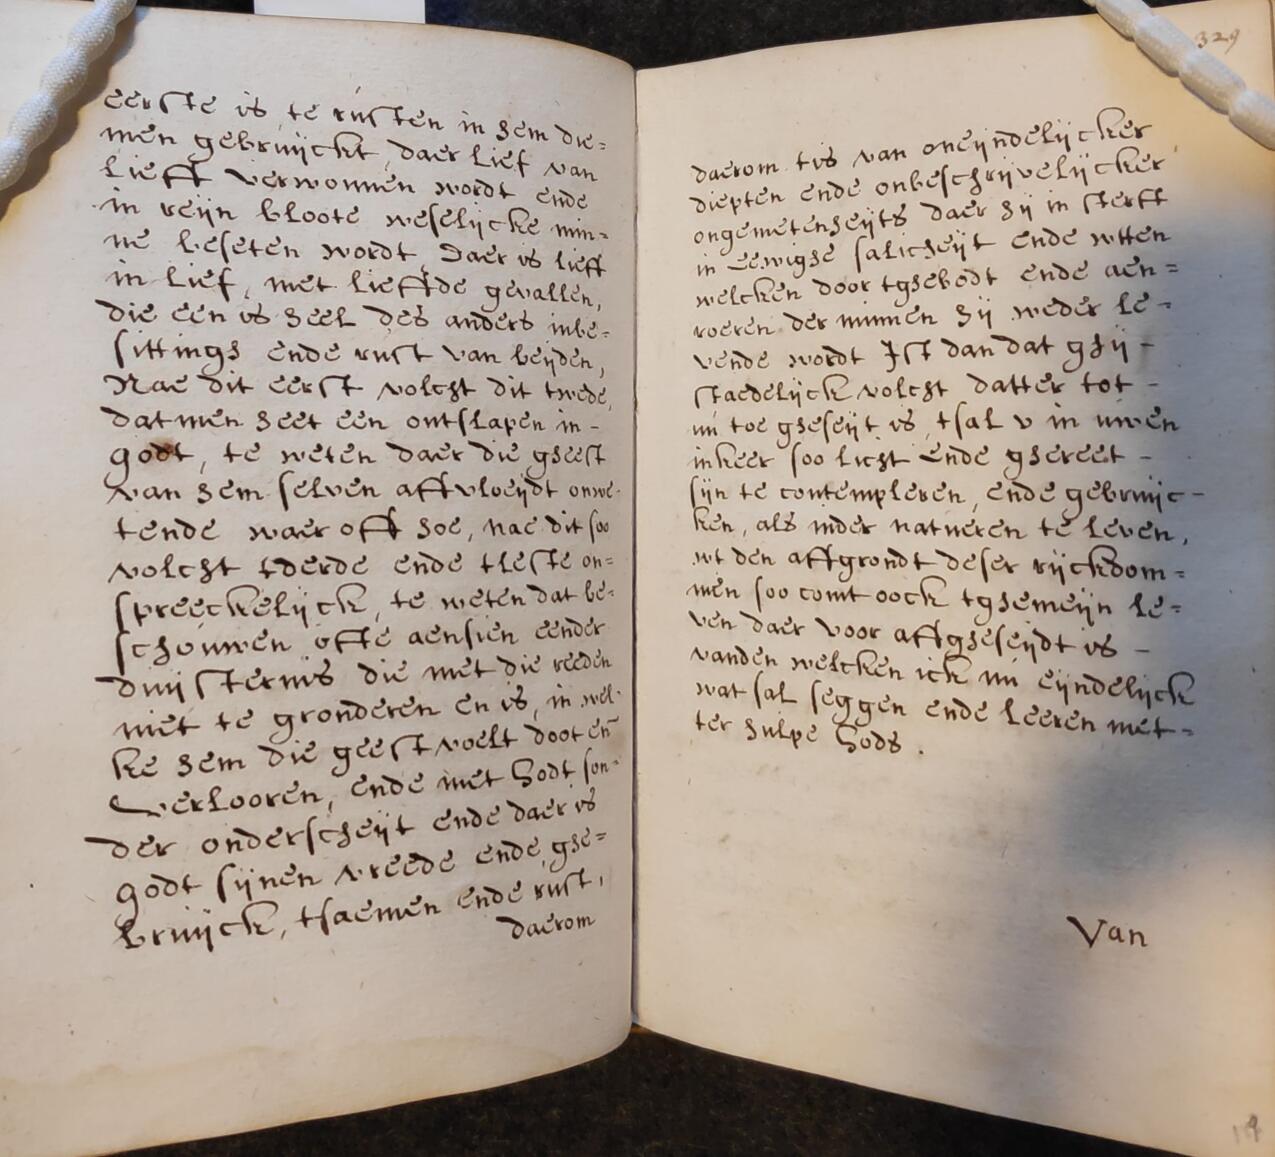 eerste is te rusten in hem die=
men gebruijckt, daer lief van
lieff verwonnen wordt ende
in reijn bloote weselijcke min=
ne beseten wordt, Daer is lieff
in lief, met lieffde gevallen,
die een is heel des anders inbe=
sittingh ende rust van beijden,
Nae dit eerst volcht dit twede,
datmen heet een ontslapen in-
godt, te weten daer die gheest
van hem selven affvloeijdt onwe-
tende waer off hoe, nae dit soo
volcht tderde ende tleste on=
spreeckelijck, te weten dat be=
schouwen ofte aensien eender
duijsternis die met die reeden
niet te gronderen en is, in wel-
ke hem die geest voelt doot en
verlooren, ende met Godt son-
der onderscheijt ende daer is
godt sijnen vreede ende ghe=
bruijck, tsaemen ende rust,
daerom
329
daerom tis van oneijndelijcker
diepten ende onbeschrijvelijcker
ongemetenheijts daer hij in sterft
in eewighe salicheijt ende wtten
welcken door tghebodt ende aen=
roeren der minnen hij weder le-
vende wordt Ist dan dat ghij -
staedelijck volcht datter tot -
nu toe gheseijt is, tsal v in uwen
inkeer soo licht ende ghereet -
sijn te contempleren, ende gebruijc-
ken, als inder natueren te leven,
wt den affgrondt deser rijckdom=
men soo comt oock tghemeijn le=
ven daer voor affgheseijdt is -
vanden welcken ick nu eijndelijck
wat sal seggen ende leeren met=
ter hulpe Gods.
Van